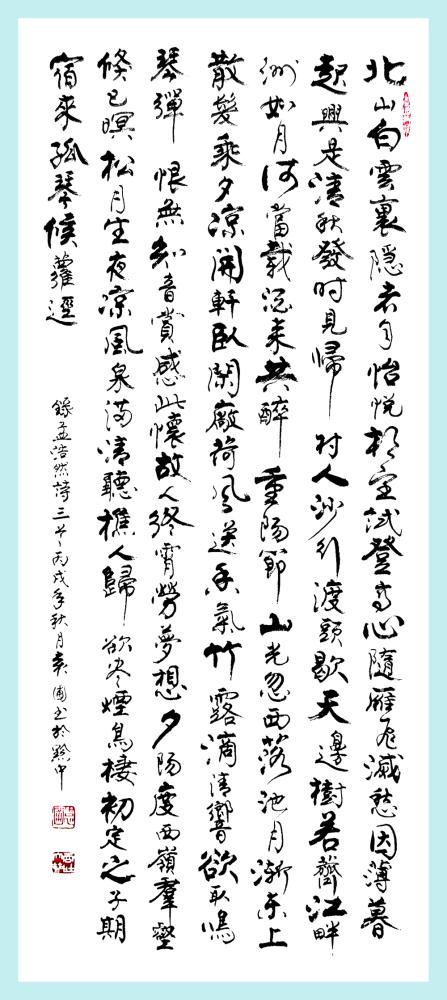 北山白雲裏隱者自怡悅相望試登高心隨雁飛滅愁因薄暮
起興是清秋發時見歸村人沙行渡頭歇天邊樹若薺江畔
洲如月何當載酒來共醉重陽節山光忽西落池月漸東上
散髮乘夕凉開軒臥閑廠荷風送香氣竹露滴清響欲取鳴
琴彈恨無知音賞感此懷故人終宵勞夢想夕陽度西嶺羣壑
倏已暝松月生夜凉風泉滿清聽樵人歸欲盡煙鳥棲初定之子期
宿來孤琴候蘿逕
錄孟浩然詩三首丙戌年秋月書於黔中